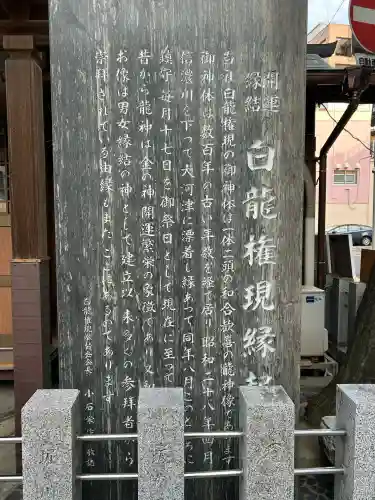 開運
縁結
白龍権現縁起
当社白龍権現の御神体は一体二頭の和合歓喜の龍神像であります
御神体は数百年の古い年数を経て居り昭和二十八年四月
信濃川を下って大河津に漂着し縁あって同年八月このところに
鎮守毎月十七日を御祭日として現在に至って
昔から龍神は金の神開運繁栄の象徴であり又
お像は男女縁結の神として建立以来多くの参拝者から
崇拝されている由縁もまたここにあるのであります
白龍権現奉賛会会長 小石
敬誌